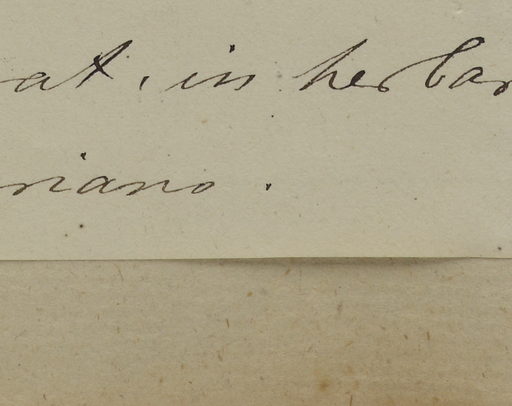 at, in herbar
riano.